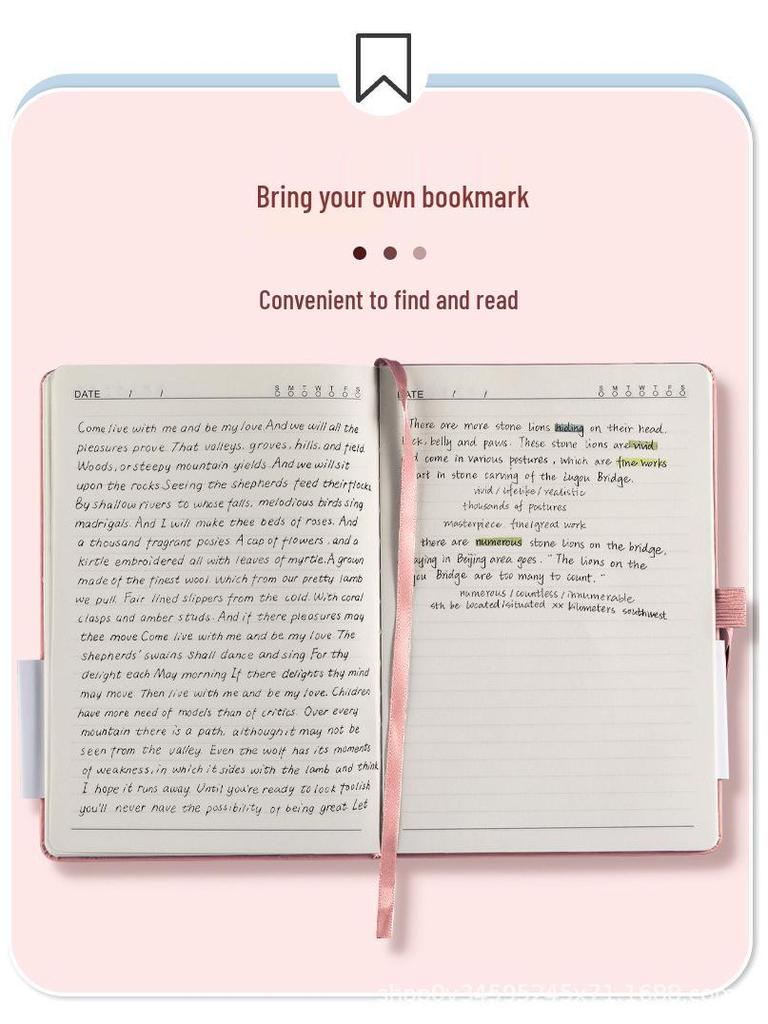 Bring your own bookmark
Convenient to find and read
DATE / / S M T W T F S
Come live with me and be my love And we will all the
pleasures prove That valleys, groves, hills, and field
Woods, or steepy mountain yields And we will sit
upon the rocks Seeing the shepherds feed their flocks
By shallow rivers to whose falls, melodious birds sing
madrigals. And I will make thee beds of roses. And
a thousand fragrant posies A cap of flowers, and a
kirtle embroidered all with leaves of myrtle. A gown
made of the finest wool. Which from our pretty lamb
we pull. Fair lined slippers from the cold. With coral
clasps and amber studs. And if there pleasures may
thee move Come live with me and be my love The
shepherds' swains Shall dance and sing For thy
delight each May morning If there delights thy mind
may move. Then live with me and be my love. Children
have more need of models than of critics. Over every
mountain there is a path, although it may not be
seen from the valley. Even the wolf has its moments
of weakness, in which it sides with the lamb and think
I hope it runs away. Until you're ready to look foolish
you'll never have the possibility of being great Let
ATE / / S M T W T F S
There are more stone lions hiding on their head,
ck, belly and paws. These stone lions are vivid
d come in various postures, which are fine works
art in stone carving of the Lugou Bridge.
vivid / lifelike / realistic
thousands of postures
masterpiece fine/great work
there are numerous stone lions on the bridge,
aying in Beijing area goes. "The lions on the
ou Bridge are too many to count."
numerous / countless / innumerable
sth be located/situated xx kilometers southwest